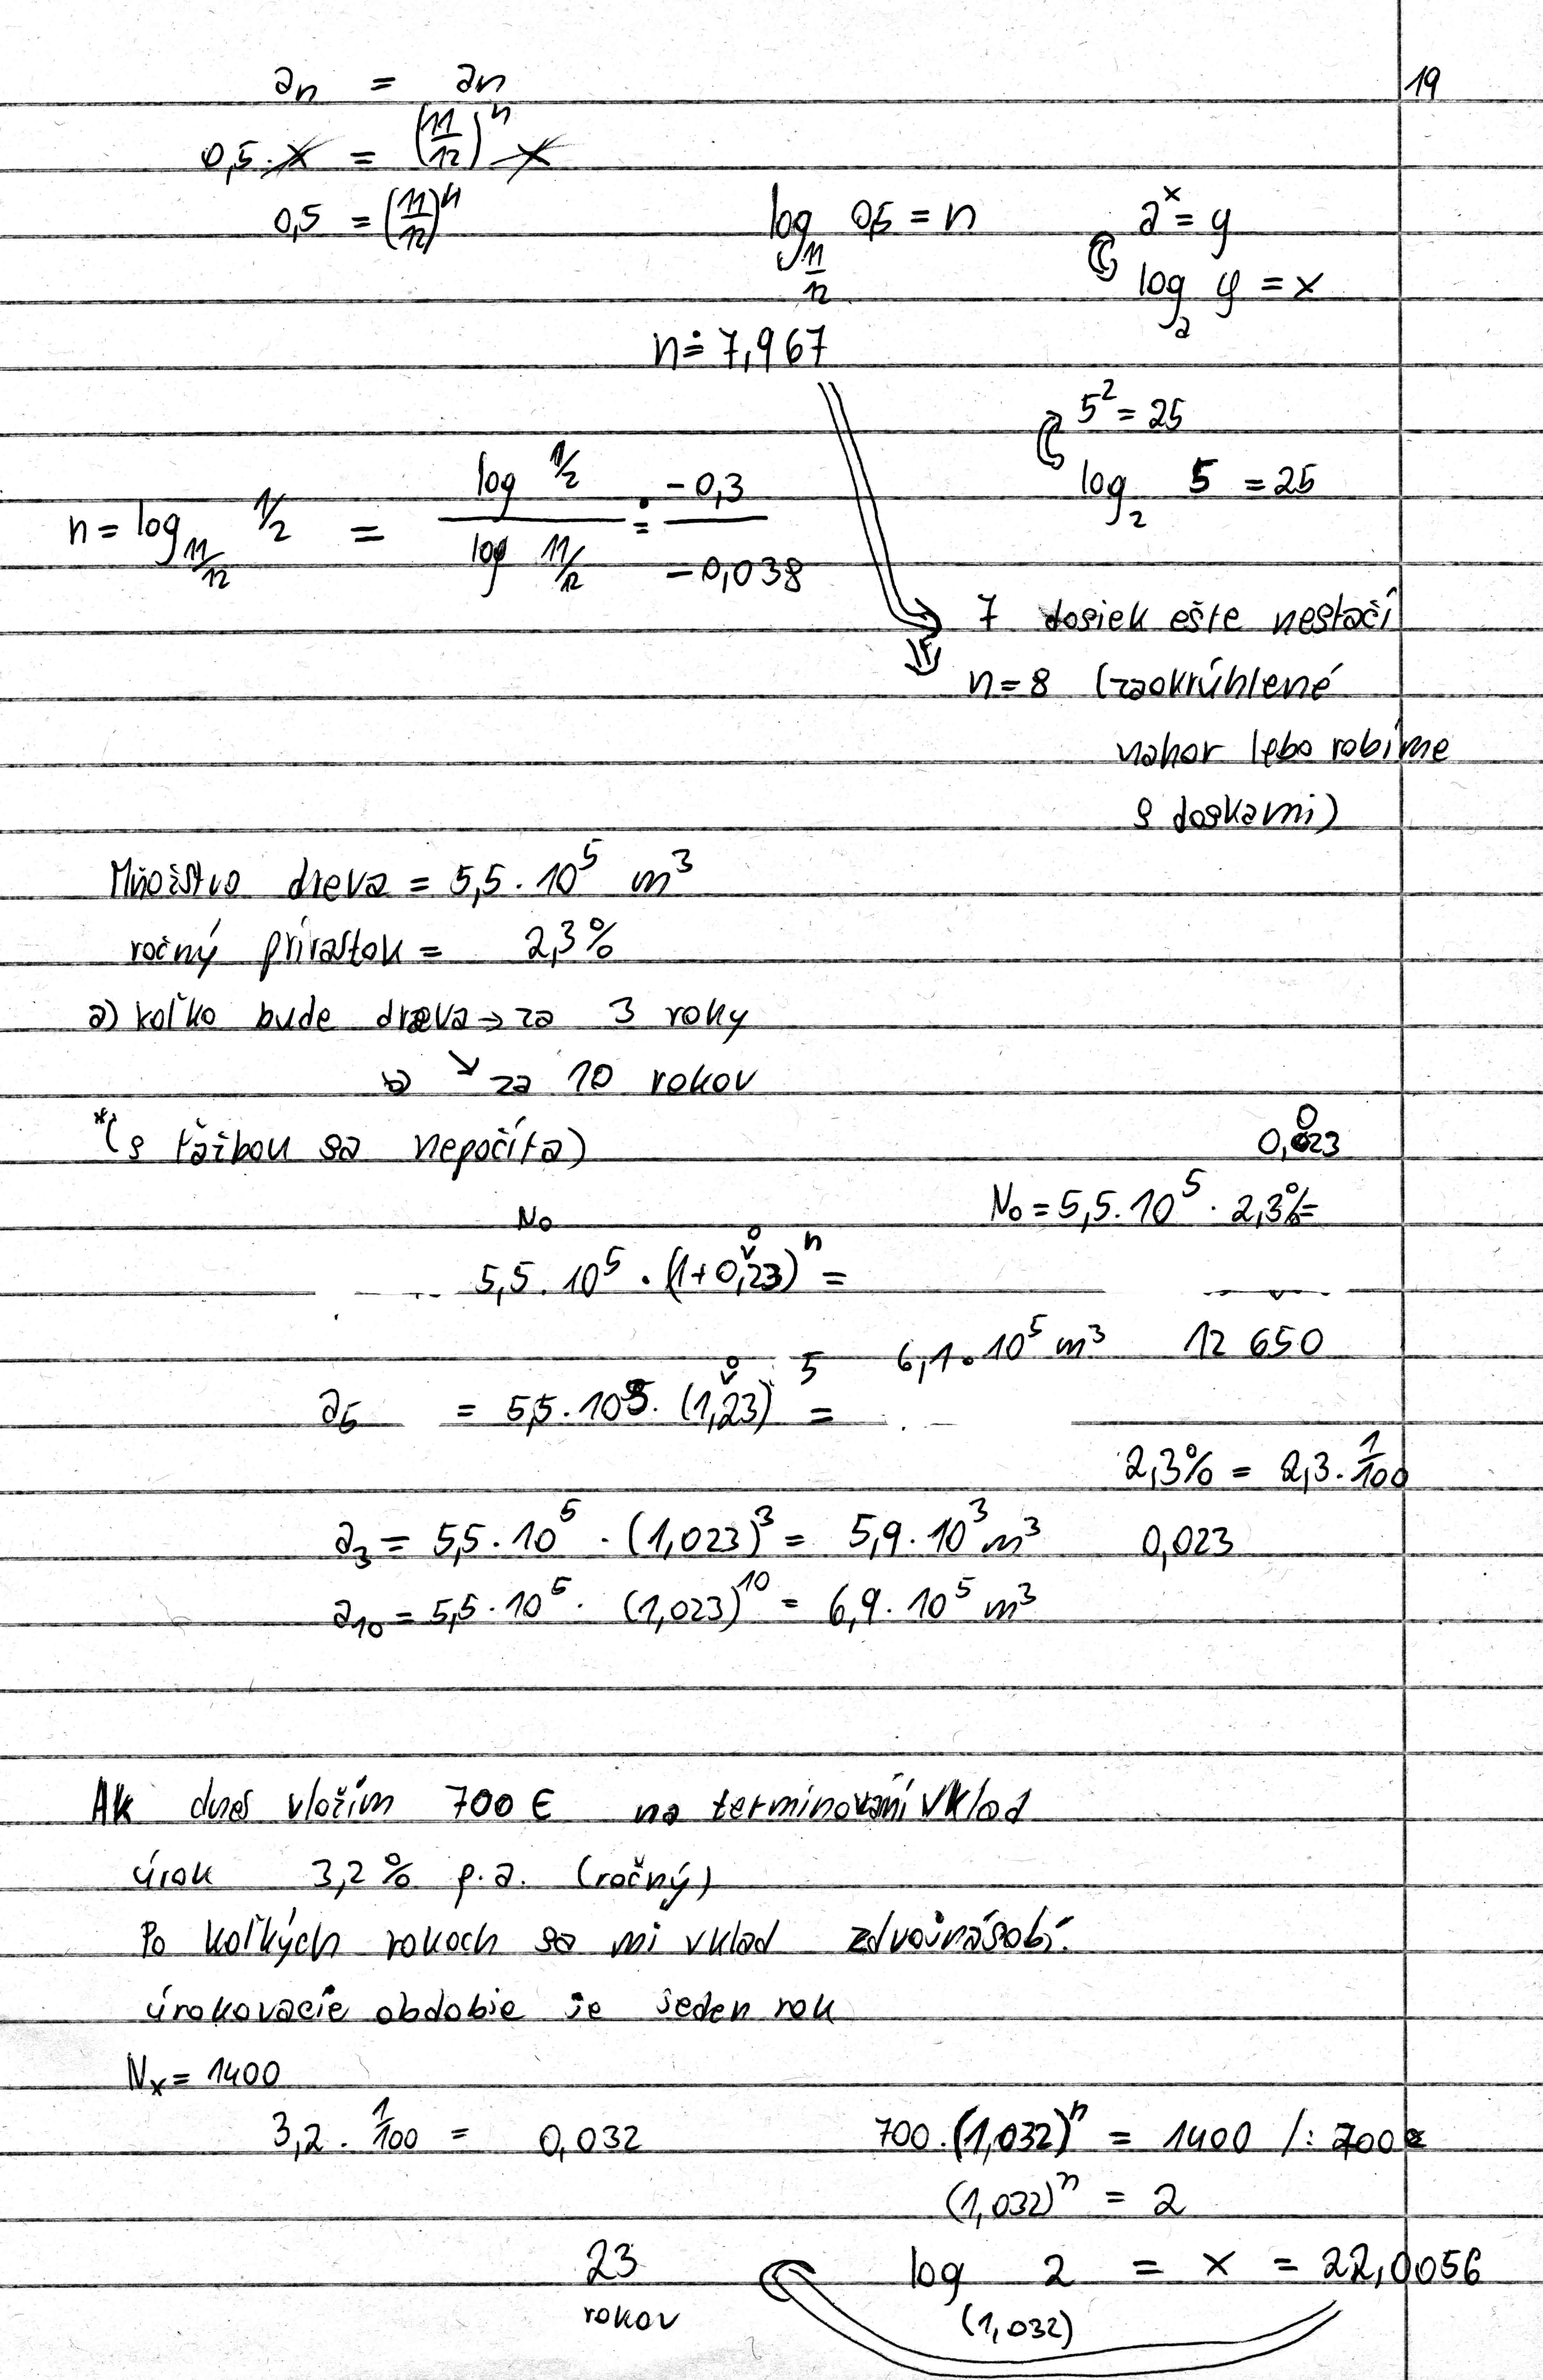 19
an = an
0,5 · x = (11/12)^n x
0,5 = (11/12)^n
log 11/12 0,5 = n
a^x = y
log a y = x
n ≐ 7,967
5² = 25
log 2 5 = 25
n = log 11/12 1/2 = log 1/2 / log 11/12 ≐ -0,3 / -0,038
7 dosiek ešte nestačí
n = 8 (zaokrúhlené
nahor lebo robíme
s doskami)
Množstvo dreva = 5,5 · 10⁵ m³
ročný prírastok = 2,3%
a) koľko bude dreva → za 3 roky
b ↘ za 10 rokov
*(s ťažbou sa nepočíta)
0,023
N₀ = 5,5 · 10⁵ · 2,3% =
N₀
5,5 · 10⁵ · (1+0,023)^n =
6,1 · 10⁵ m³ 12 650
a5 = 5,5 · 10⁵ · (1,023)⁵ =
2,3% = 2,3 · 1/100
a₃ = 5,5 · 10⁵ · (1,023)³ = 5,9 · 10³ m³ 0,023
a₁₀ = 5,5 · 10⁵ · (1,023)¹⁰ = 6,9 · 10⁵ m³
Ak dnes vložím 700 € na terminovaní vklad
úrok 3,2% p.a. (ročný)
Po koľkých rokoch sa mi vklad zdvojnásobí.
úrokovacie obdobie je jeden rok
Nx = 1400
3,2 · 1/100 = 0,032
700 · (1,032)^n = 1400 /: 700
(1,032)^n = 2
log (1,032) 2 = x = 22,0056
23
rokov